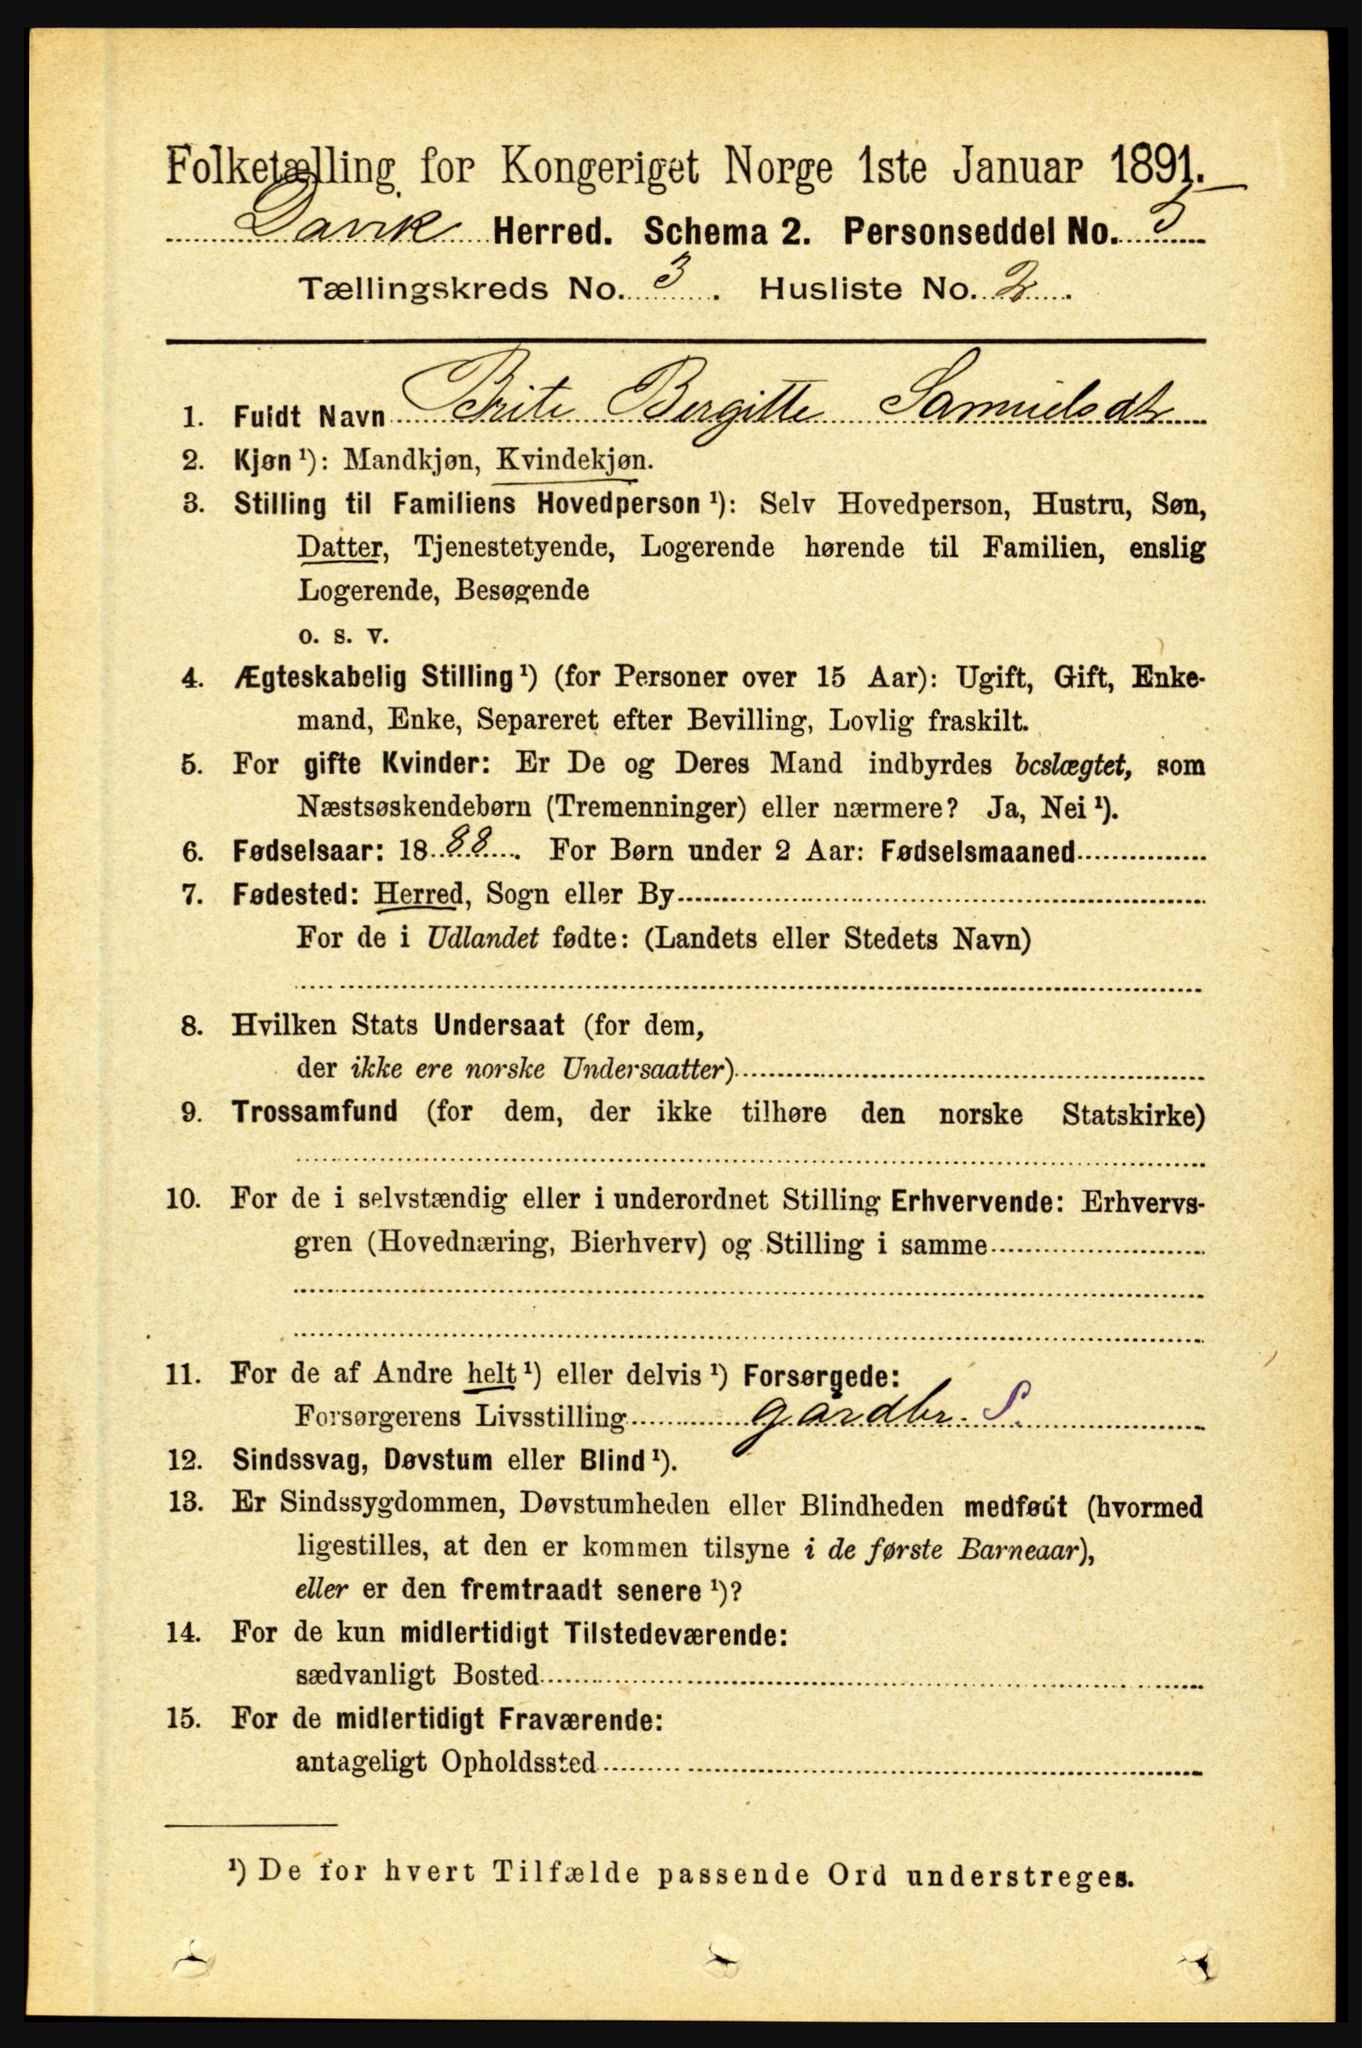 Folketælling for Kongeriget Norge 1ste Januar 1891.
Davik Herred. Schema 2. Personseddel No. 5
Tællingskreds No. 3. Husliste No. 2.
1. Fuldt Navn Brite Bergitte Samuelsdtr
2. Kjøn ¹): Mandkjøn, Kvindekjøn.
3. Stilling til Familiens Hovedperson ¹): Selv Hovedperson, Hustru, Søn,
Datter, Tjenestetyende, Logerende hørende til Familien, enslig
Logerende, Besøgende
o. s. v.
4. Ægteskabelig Stilling ¹) (for Personer over 15 Aar): Ugift, Gift, Enke-
mand, Enke, Separeret efter Bevilling, Lovlig fraskilt.
5. For gifte Kvinder: Er De og Deres Mand indbyrdes beslægtet, som
Næstsøskendebørn (Tremenninger) eller nærmere? Ja, Nei ¹).
6. Fødselsaar: 1888. For Børn under 2 Aar: Fødselsmaaned
7. Fødested: Herred, Sogn eller By
For de i Udlandet fødte: (Landets eller Stedets Navn)
8. Hvilken Stats Undersaat (for dem,
der ikke ere norske Undersaatter)
9. Trossamfund (for dem, der ikke tilhøre den norske Statskirke)
10. For de i selvstændig eller i underordnet Stilling Erhvervende: Erhvervs-
gren (Hovednæring, Bierhverv) og Stilling i samme
11. For de af Andre helt ¹) eller delvis ¹) Forsørgede:
Forsørgerens Livsstilling gardbr. S.
12. Sindssvag, Døvstum eller Blind ¹).
13. Er Sindssygdommen, Døvstumheden eller Blindheden medfødt (hvormed
ligestilles, at den er kommen tilsyne i de første Barneaar),
eller er den fremtraadt senere ¹)?
14. For de kun midlertidigt Tilstedeværende:
sædvanligt Bosted
15. For de midlertidigt Fraværende:
antageligt Opholdssted
¹) De for hvert Tilfælde passende Ord understreges.